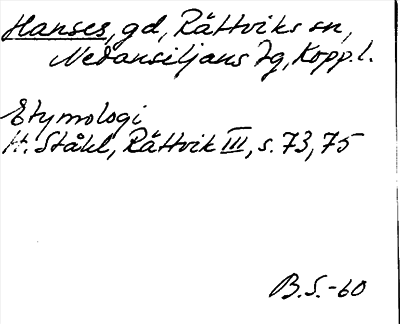 Hanses, gd, Rättviks sn,
Nedansiljans tg, Kopp. l.
Etymologi
H. Ståhl, Rättvik III, s. 73, 75
B.S.-60